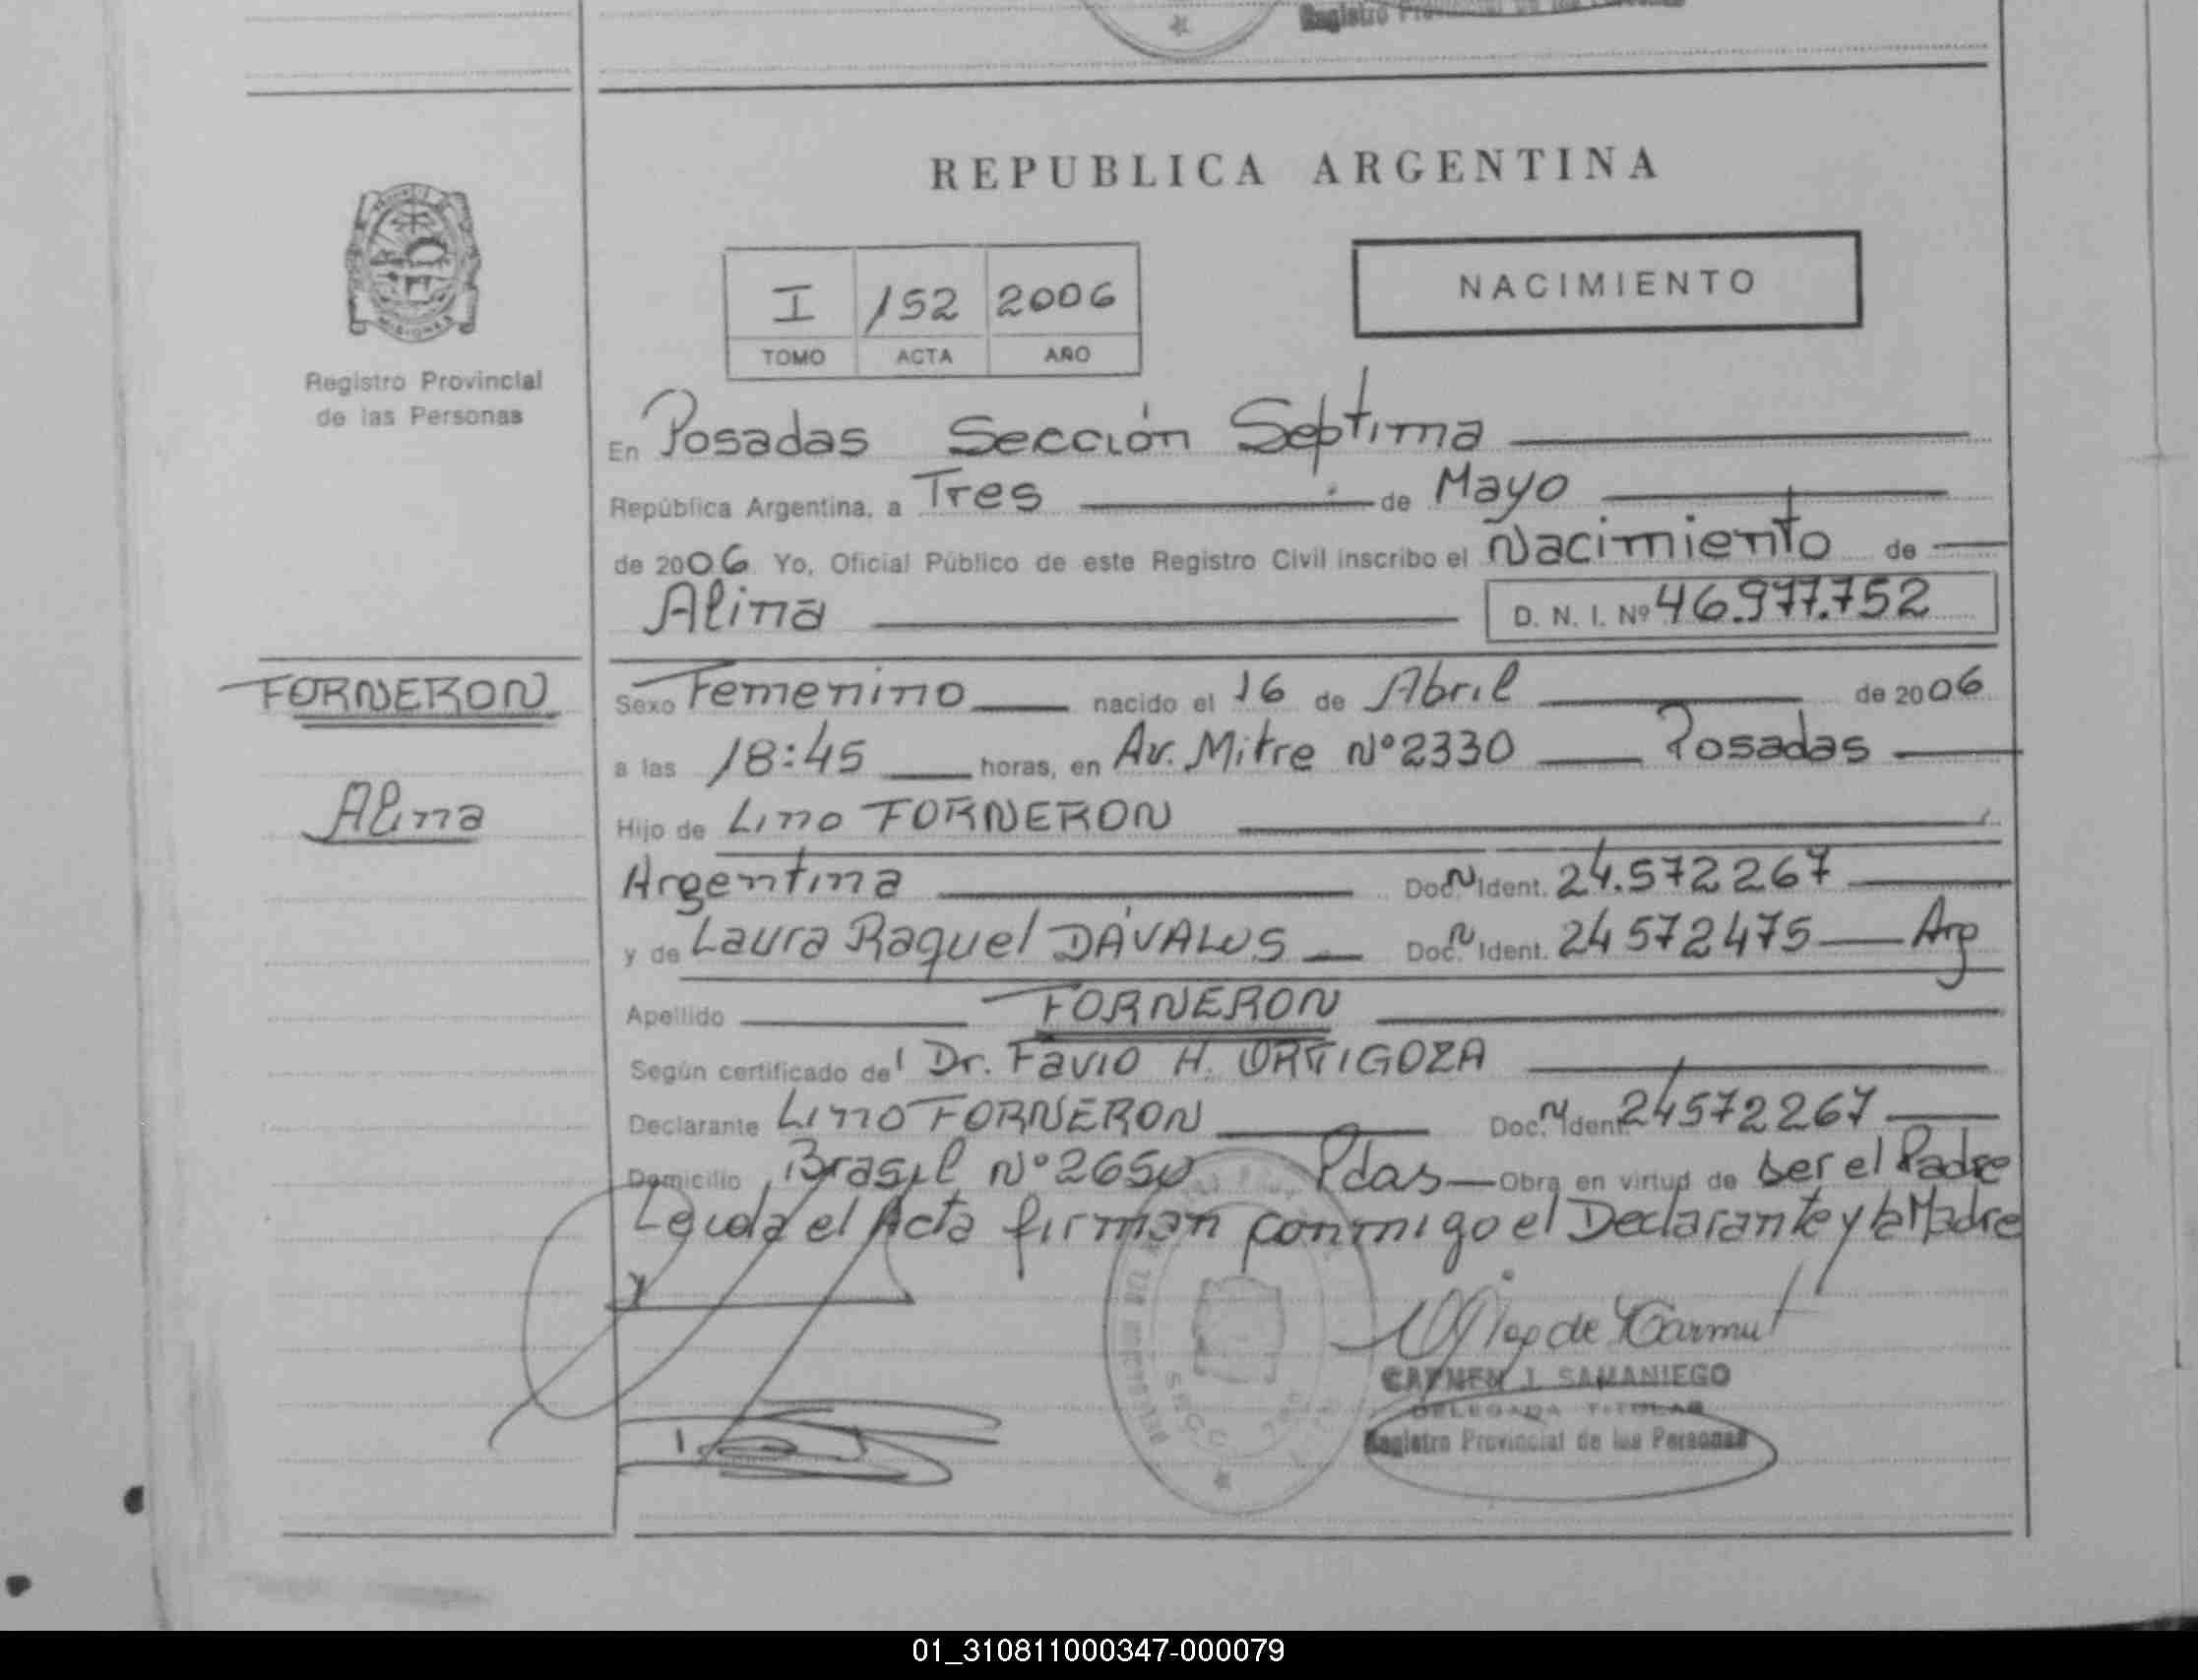 Registro Provincial de las Personas
REPUBLICA ARGENTINA
I /152 2006
TOMO ACTA AÑO
NACIMIENTO
MISIONES
Registro Provincial
de las Personas
En Posadas Sección Septima
República Argentina, a Tres de Mayo
de 2006 Yo, Oficial Público de este Registro Civil inscribo el Nacimiento de
Alina D. N. I. Nº 46.977.752
FORNERON
Alina
Sexo Femenino nacido el 16 de Abril de 2006
a las 18:45 horas, en Av. Mitre Nº 2330 Posadas
Hijo de Lino FORNERON
Argentina Doc. N Ident. 24.572267
y de Laura Raquel DÁVALOS Doc. N Ident. 24572475 Arg
Apellido FORNERON
Según certificado del Dr. Favio H. ORTIGOZA
Declarante Lino FORNERON Doc. N Ident. 24572267
Domicilio Brasil Nº 2650 Pdas Obra en virtud de ser el Padre
Leida el Acta firman conmigo el Declarante y la Madre
CARMEN I. SAMANIEGO
DELEGADA TITULAR
Registro Provincial de las Personas
01_310811000347-000079